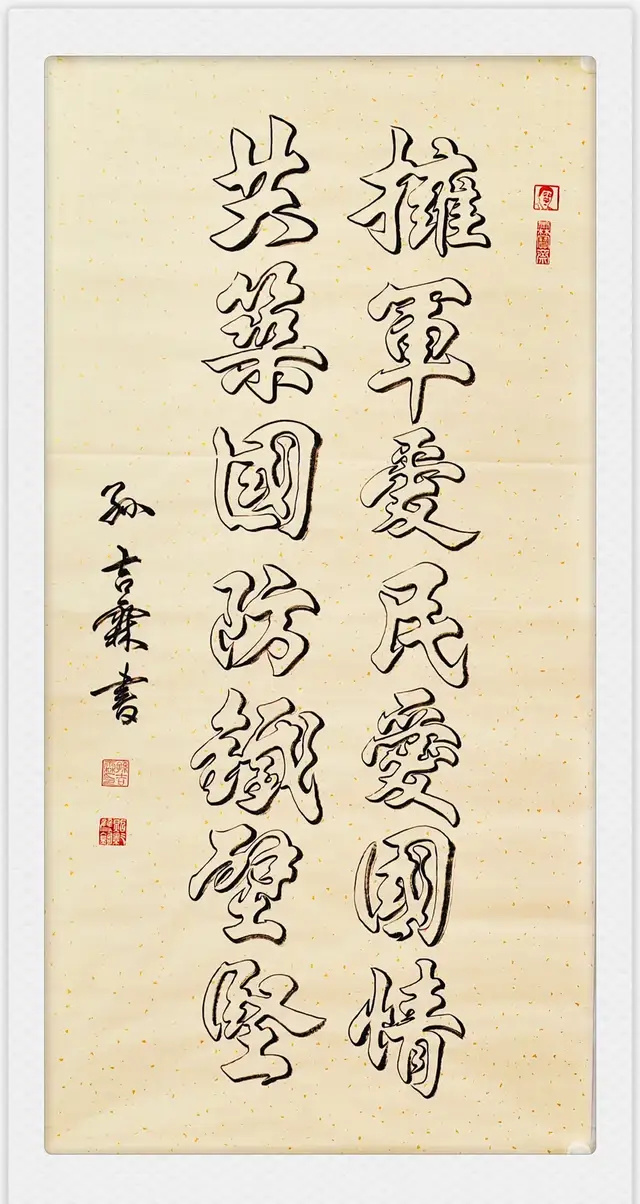 擁軍愛民愛國情
共築國防鐵壁堅
孫吉霖書